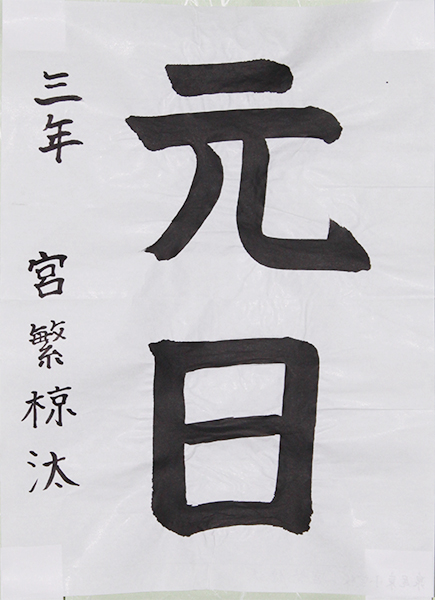 元日
三年 宮繁椋汰